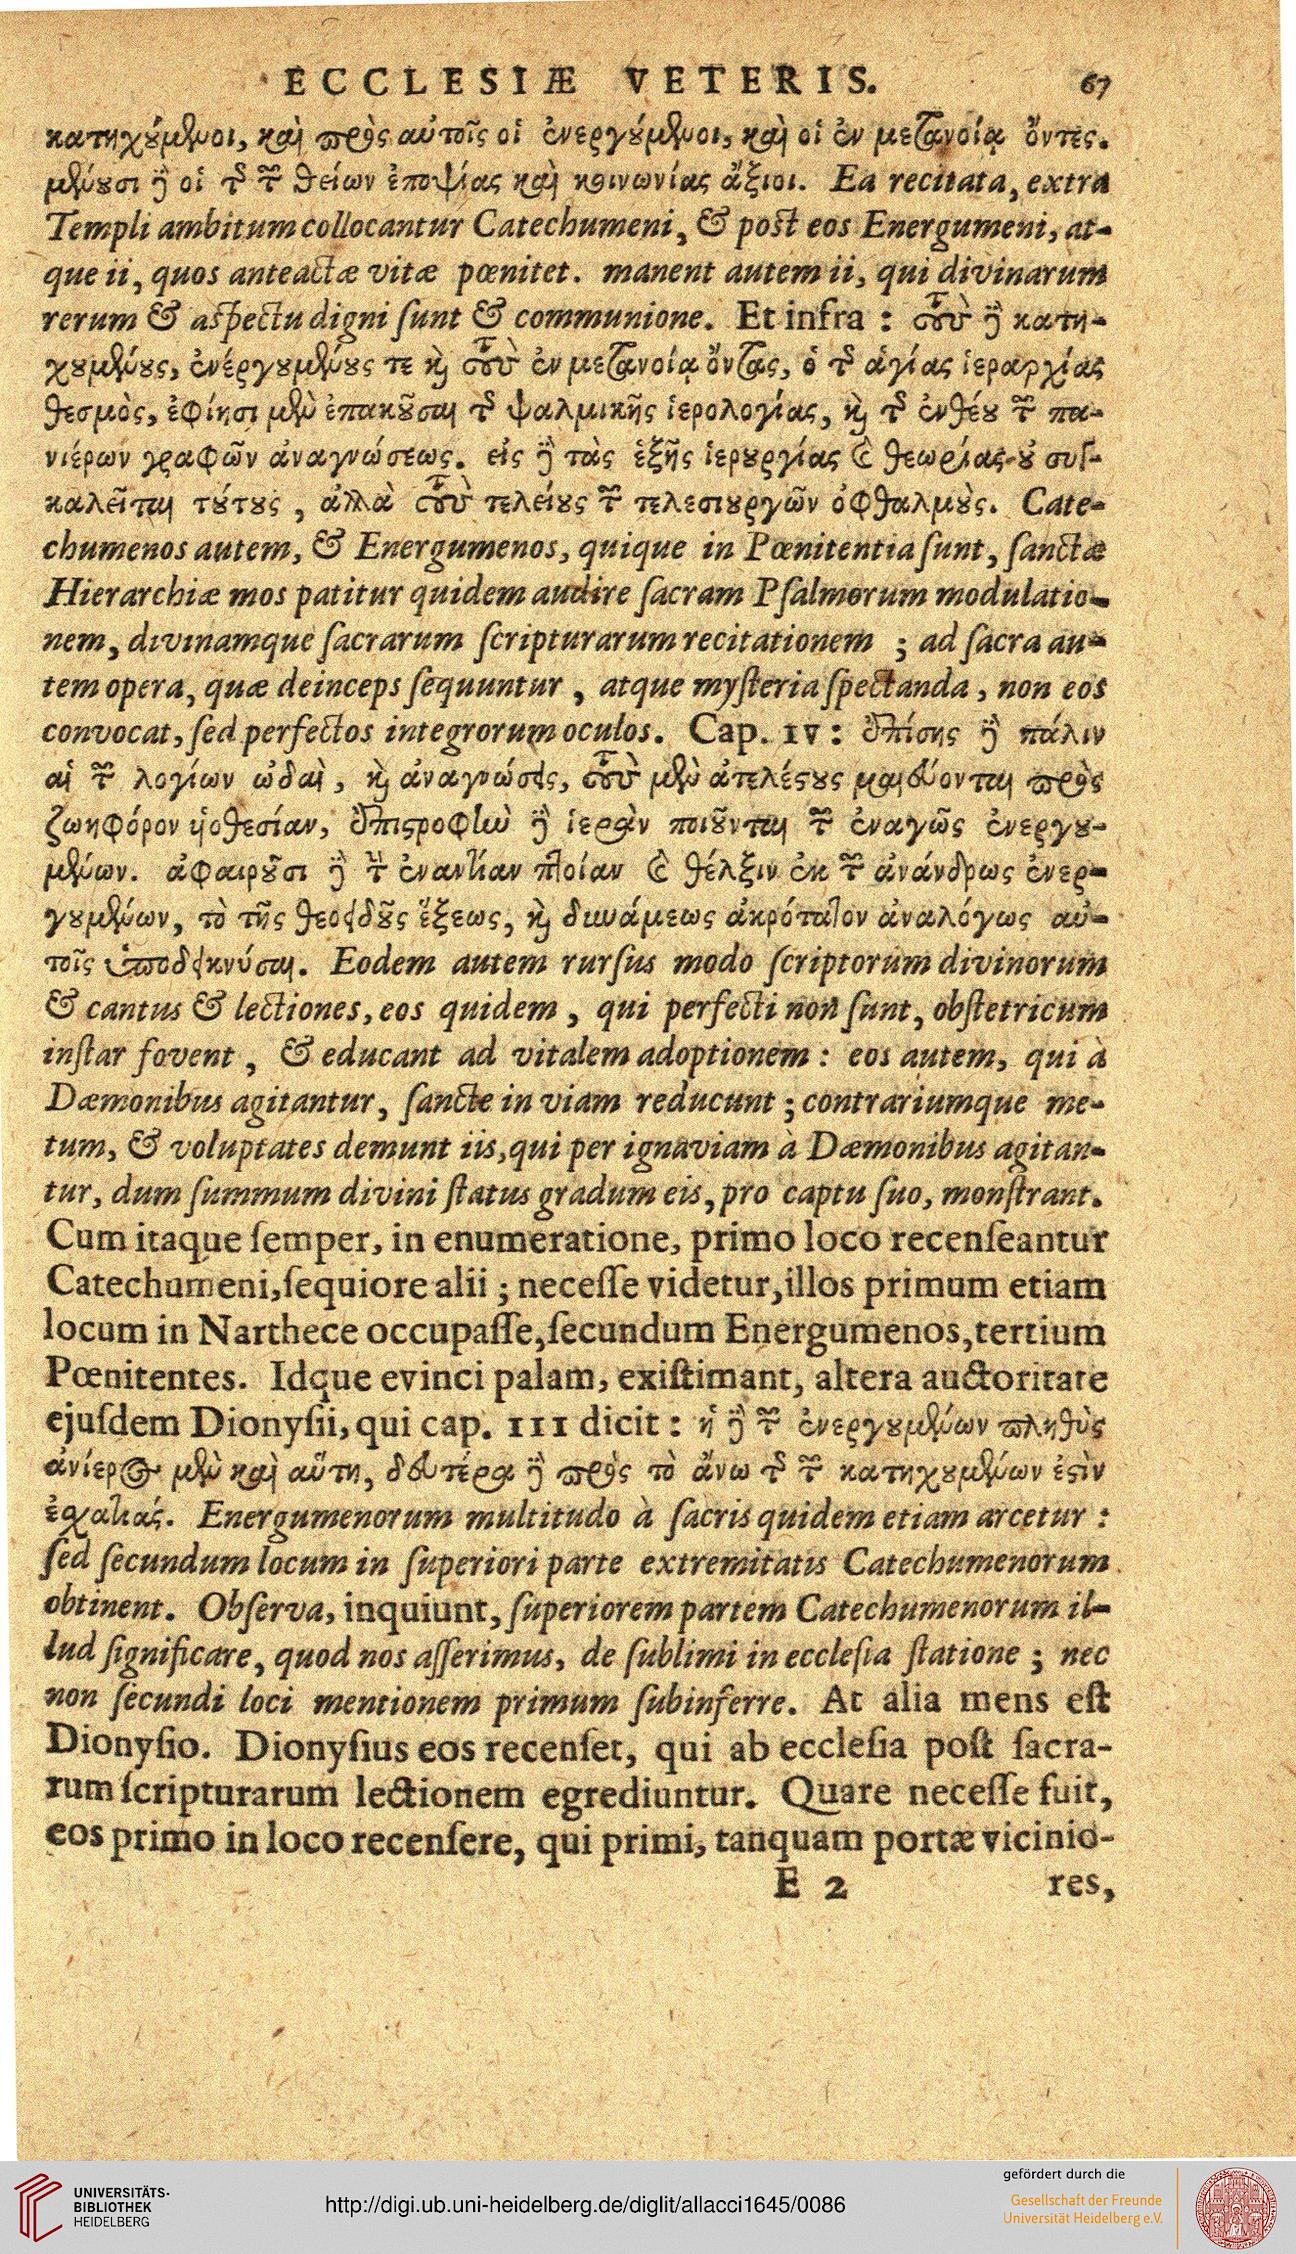 ECCLESIÆ VETERIS. 67
κατηχούμενοι, καὶ πρὸς αὐτοῖς οἱ ἐνεργούμενοι, καὶ οἱ ἐν μετανοίᾳ ὄντες.
μένουσι δὲ οἱ τῆς τῶν θείων ἐποψίας καὶ κοινωνίας ἄξιοι. Ea recitata, extra
Templi ambitum collocantur Catechumeni, & post eos Energumeni, at-
que ii, quos anteactæ vitæ pœnitet. manent autem ii, qui divinarum
rerum & aſpectu digni ſunt & communione. Et infra : τοὺς δὲ κατη-
χουμένους, ἐνέργουμένους τε καὶ τοὺς ἐν μετανοίᾳ ὄντας, ὁ τῆς ἁγίας ἱεραρχίας
θεσμὸς, ἐφίησι μὲν ἐπακοῦσαι τῆς ψαλμικῆς ἱερολογίας, καὶ τῆς ἐνθέου τῶν πα-
νιέρων γραφῶν ἀναγνώσεως. εἰς δὲ τὰς ἑξῆς ἱερουργίας καὶ θεωρίας οὐ συγ-
καλεῖται τούτους, ἀλλὰ τοὺς τελείους τῶν τελεσιουργῶν ὀφθαλμούς. Cate-
chumenos autem, & Energumenos, quique in Pœnitentia ſunt, ſanctæ
Hierarchiæ mos patitur quidem audire ſacram Pſalmorum modulatio-
nem, divinamque ſacrarum ſcripturarum recitationem ; ad ſacra au-
tem opera, quæ deinceps ſequuntur, atque myſteria ſpectanda, non eos
convocat, ſed perfectos integrorum oculos. Cap. IV : ἐπίσης δὲ πάλιν
αἱ τῶν λογίων ᾠδαὶ, καὶ ἀναγνώσεις, τοὺς μὲν ἀτελέστους μαιεύονται πρὸς
ζωηφόρον υἱοθεσίαν, ἐπιστροφὴν δὲ ἱερὰν ποιοῦνται τῶν ἐναγῶς ἐνεργου-
μένων. ἀφαιροῦσι δὲ τὴν ἐναντίαν πτοίαν καὶ θέλξιν ἐκ τῶν ἀνάνδρως ἐνερ-
γουμένων, τὸ τῆς θεοειδοῦς ἕξεως, καὶ δυνάμεως ἀκρότατον ἀναλόγως αὐ-
τοῖς ὑποδεικνύσαι. Eodem autem rurſus modo ſcriptorum divinorum
& cantus & lectiones, eos quidem, qui perfecti non ſunt, obſtetricum
inſtar fovent, & educant ad vitalem adoptionem : eos autem, qui à
Dæmonibus agitantur, ſancte in viam reducunt ; contrariumque me-
tum, & voluptates demunt iis, qui per ignaviam à Dæmonibus agitan-
tur, dum ſummum divini ſtatus gradum eis, pro captu ſuo, monſtrant.
Cum itaque ſemper, in enumeratione, primo loco recenſeantur
Catechumeni, ſequiore alii ; neceſſe videtur, illos primum etiam
locum in Narthece occupaſſe, ſecundum Energumenos, tertium
Pœnitentes. Idque evinci palam, exiſtimant, altera auctoritate
ejuſdem Dionyſii, qui cap. III dicit : ἡ δὲ τῶν ἐνεργουμένων πληθὺς
ἀνίερος μὲν καὶ αὕτη, δευτέρα δὲ πρὸς τὸ ἄνω τῆς τῶν κατηχουμένων ἐστὶν
ἐσχατιάς. Energumenorum multitudo à ſacris quidem etiam arcetur :
ſed ſecundum locum in ſuperiori parte extremitatis Catechumenorum
obtinent. Obſerva, inquiunt, ſuperiorem partem Catechumenorum il-
lud ſignificare, quod nos aſſerimus, de ſublimi in eccleſia ſtatione ; nec
non ſecundi loci mentionem primum ſubinferre. At alia mens eſt
Dionyſio. Dionyſius eos recenſet, qui ab eccleſia poſt ſacra-
rum ſcripturarum lectionem egrediuntur. Quare neceſſe fuit,
eos primo in loco recenſere, qui primi, tanquam portæ vicinio-
E 2 res,
UNIVERSITÄTS-
BIBLIOTHEK
HEIDELBERG
http://digi.ub.uni-heidelberg.de/diglit/allacci1645/0086
gefördert durch die
Gesellschaft der Freunde
Universität Heidelberg e.V.